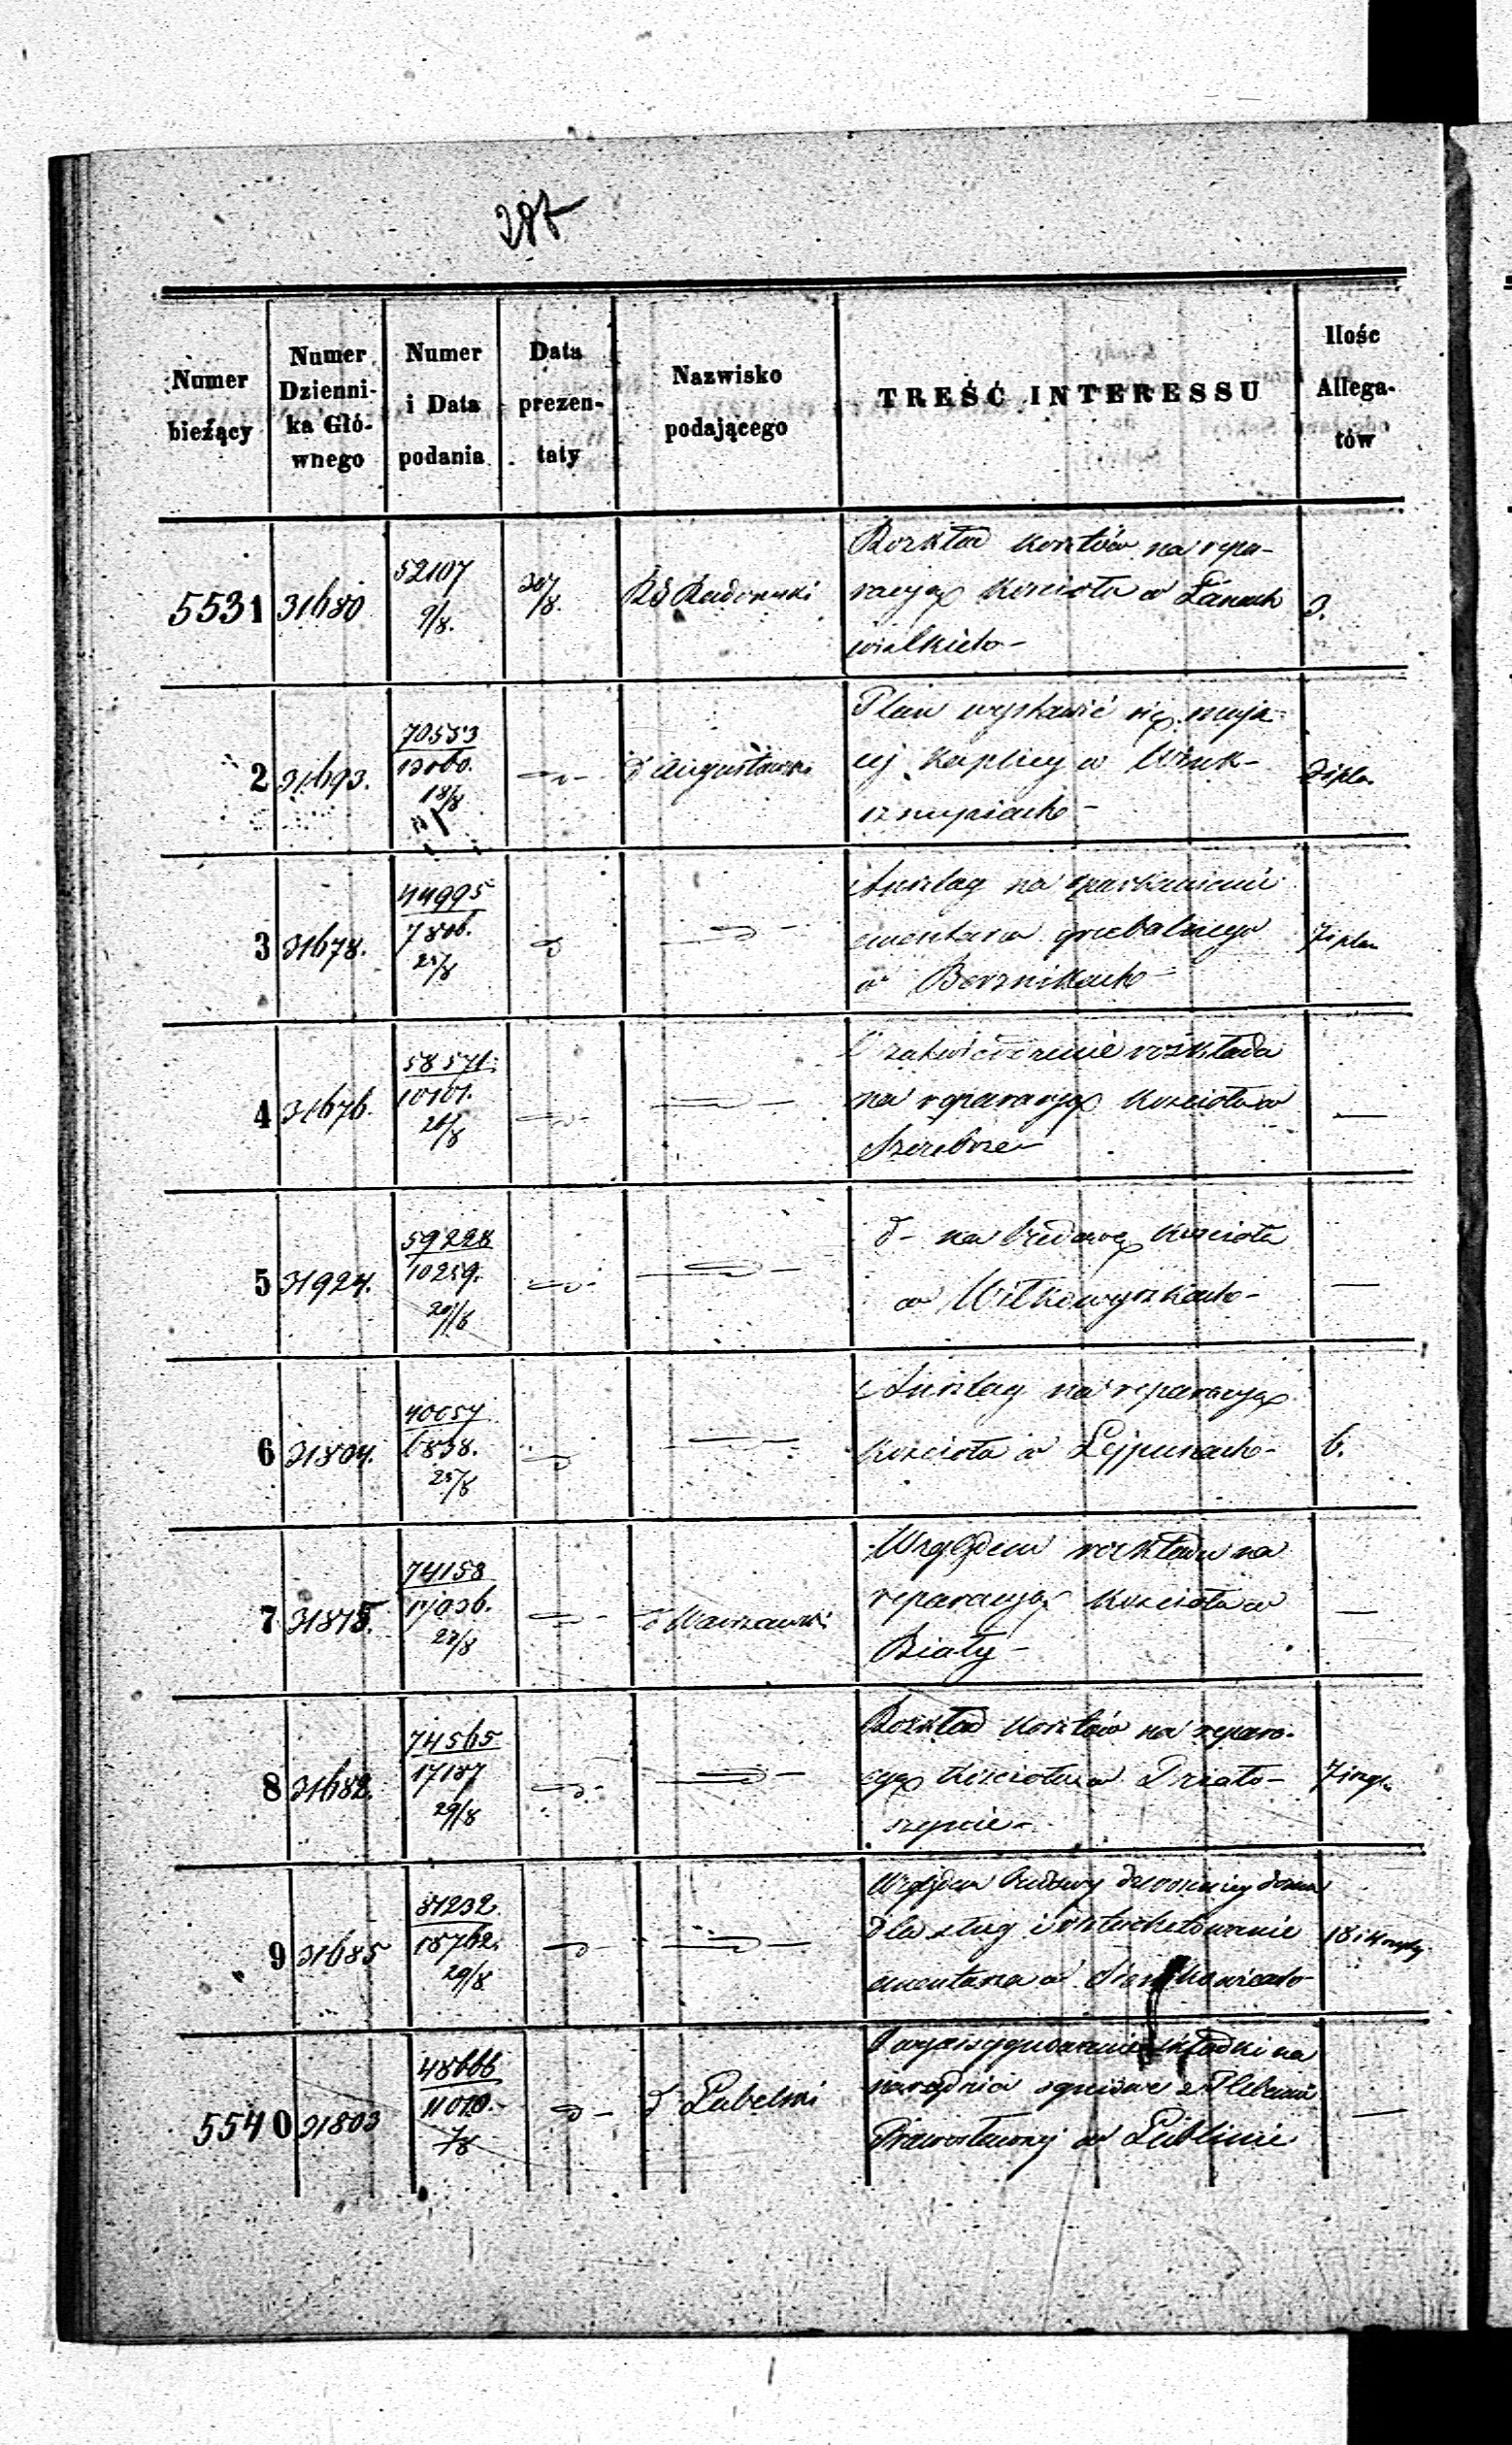 285
Numer bieżący
Numer Dzienni- ka Głó- wnego
Numer i Data podania
Data prezen- taty
Nazwisko podającego
TREŚĆ INTERESSU
Ilość Allega- tów
5531 31680 52107 9/8. 30/8. RG Radomski
Rozkład kosztów na repa-
racyą kościoła w Łanach
wielkich 3.
2 31693. 70553 18/8 d Augustowski
Plan wystawić się mają-
cej kaplicy w
2 i plan
3 31678. 44995 7806. 25/8
Anszlag na oparkanienie
cmentarza grzebalnego
w Berznikach
7 i plan
4 31676. 58571 10101. 26/8
O zatwierdzenie rozkładu
na reparacyą kościoła w
Szczebrze —
5 31924. 59228 10259. 29/8
d- na budowę kościoła
w Wiłkowyszkach —
6 31804. 40054 6838. 25/8
Anszlag na reparacyą
kościoła w Lejpunach 6.
7 31875. 74158 17036. 23/8 d Warszawski
Względem rozkładu na
reparacyą kościoła w
Biały —
8 31682. 74565 17187 29/8
Rozkład kosztów na repara-
cyą kościoła w Działo-
szynie
9 31685 81232 18762. 29/8
Względem budowy dzwonnicy domu
dla sług i osztachetowanie
cmentarza w
5540 31803 48666 11010. 7/8 d Lubelski
składki na
narzędzia ogniowe z Plebanii
Prawosławnej w Lublinie —